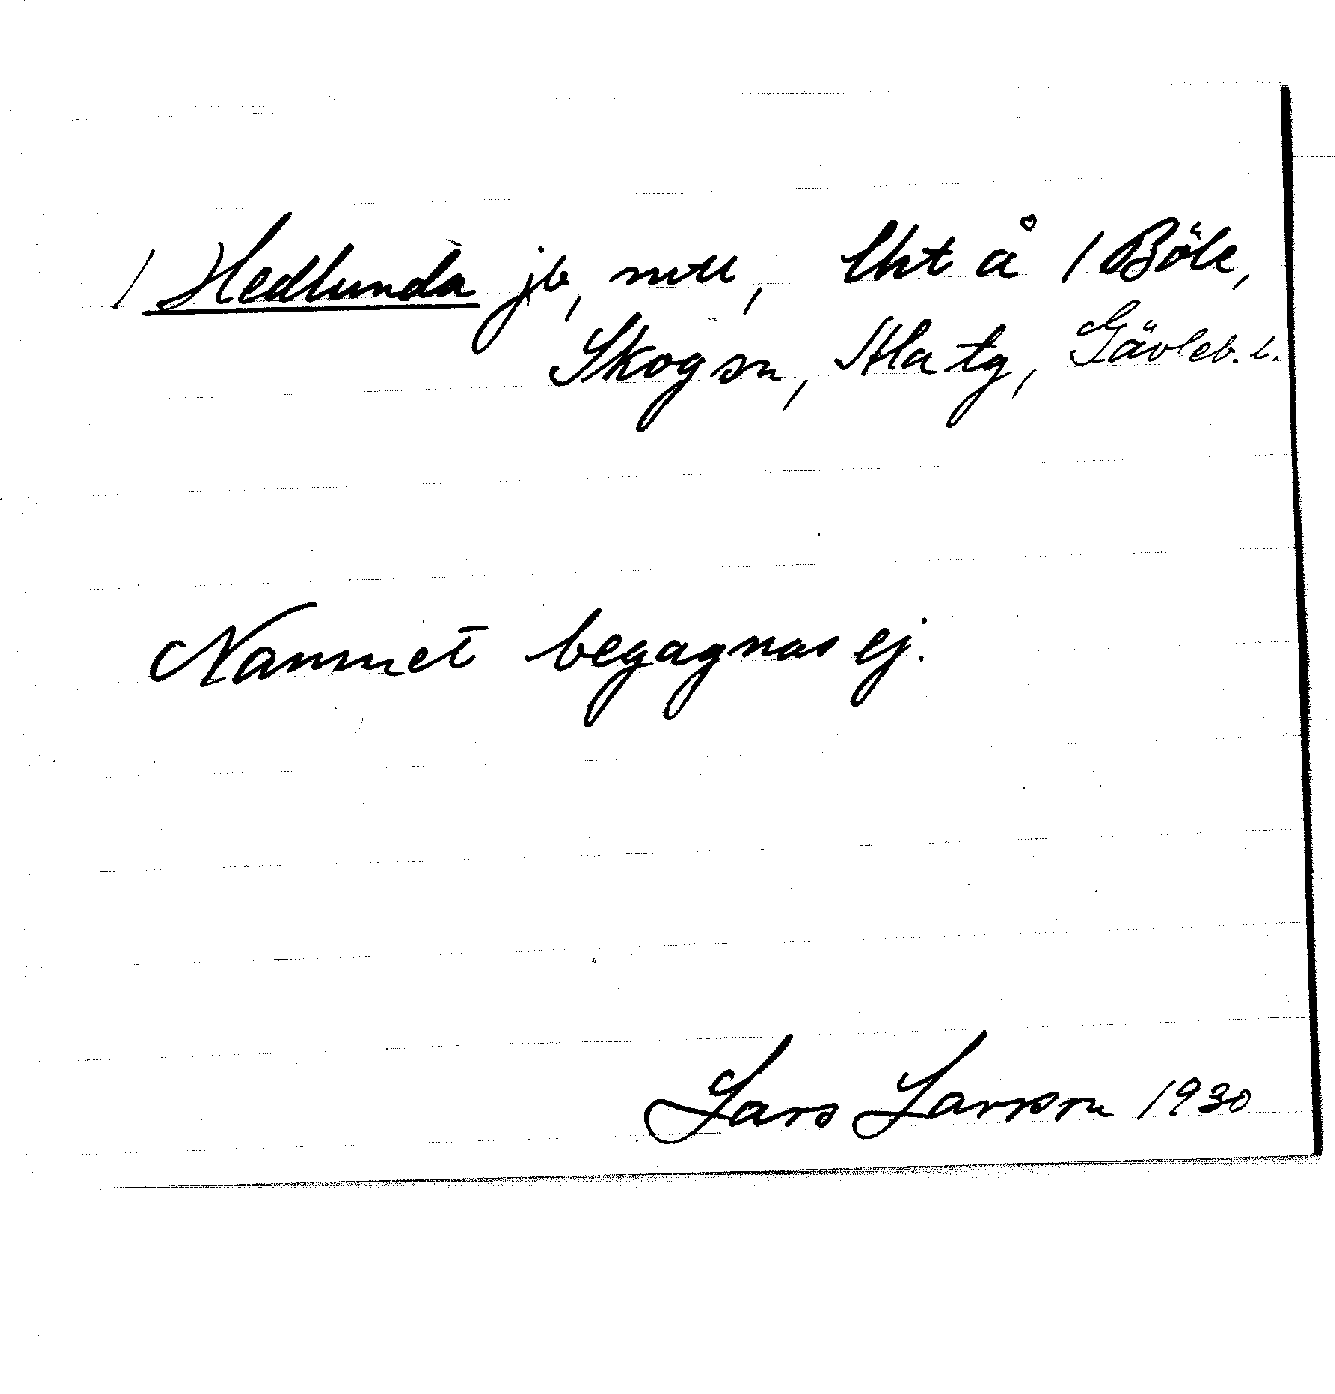 / Hedlunda jb, mtl, lht å / Böle,
Skog sn, Ala tg, Gävleb. l.
Namnet begagnas ej.
Lars Larsson 1930